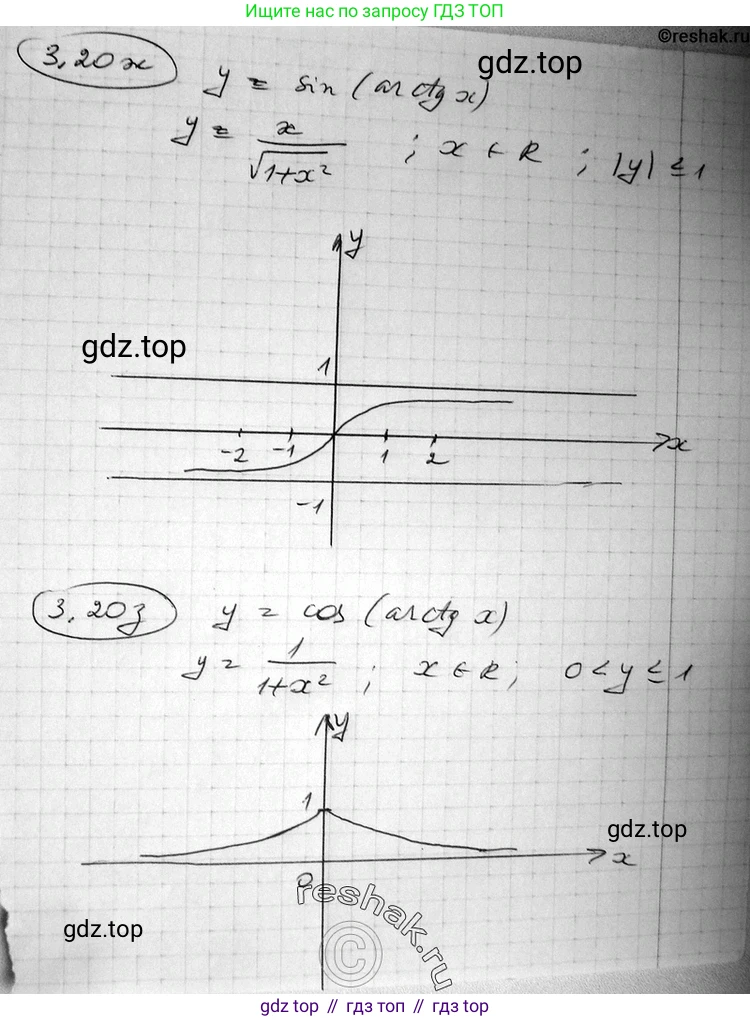 Ищите нас по запросу ГДЗ ТОП
©reshak.ru
3.20ж
gdz.top
y = sin (arctg x)
y = x / √1+x² ; x ∈ R ; |y| ≤ 1
y
gdz.top
1
x
-2 -1 1 2
-1
3.20з y = cos (arctg x)
y = 1 / 1+x² ; x ∈ R ; 0 < y ≤ 1
y
1
gdz.top
x
0
reshak.ru
©
gdz.top
gdz top // гдз топ // гдз top